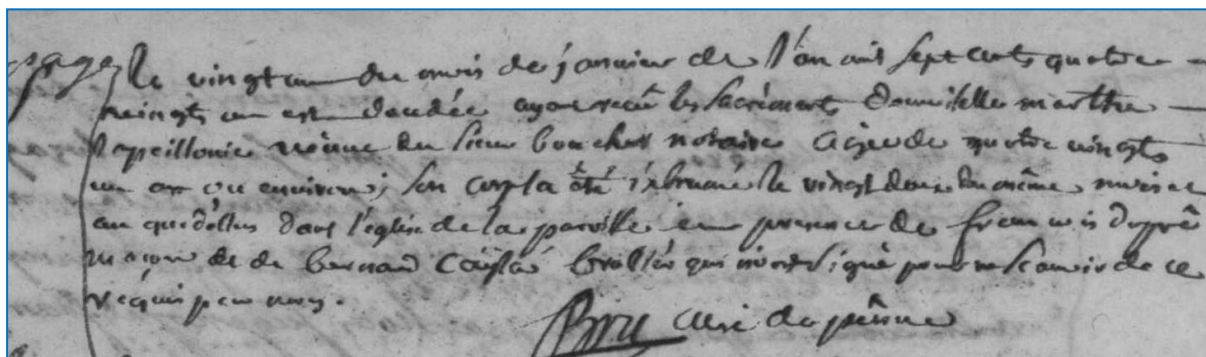 page
le vingt un du mois de janvier de l'an mil sept cents quatre
vingts un est decedée ayant reçû les sacréments demoiselle marthe
lapeillonie veuve du sieur bouchet notaire agée de quatre vingts
un an ou environ; son corp la été inhumé le vingt deux du même mois et
an que dessus dans l'églize de la paroisse en presence de francois dupré
maçon et de bernard brassier qui n'ont signé pour ne scavoir de ce
requis par moy.
Bru curé de penne